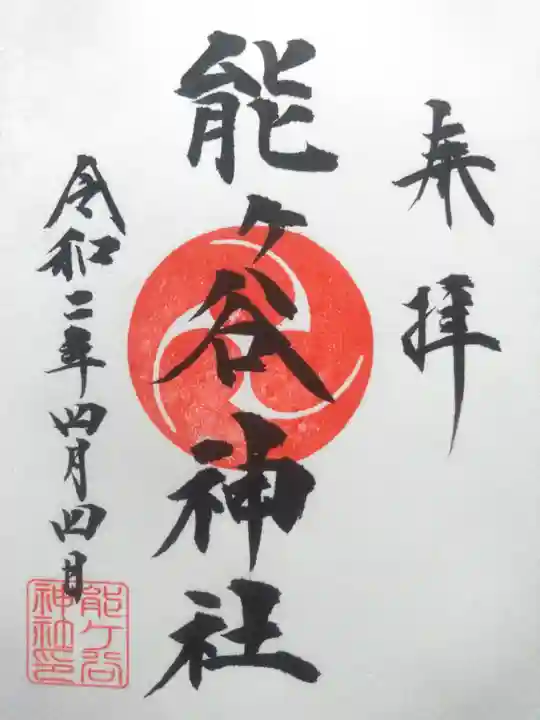 奉拝
能ヶ谷神社
令和二年四月四日
能ケ谷
神社印